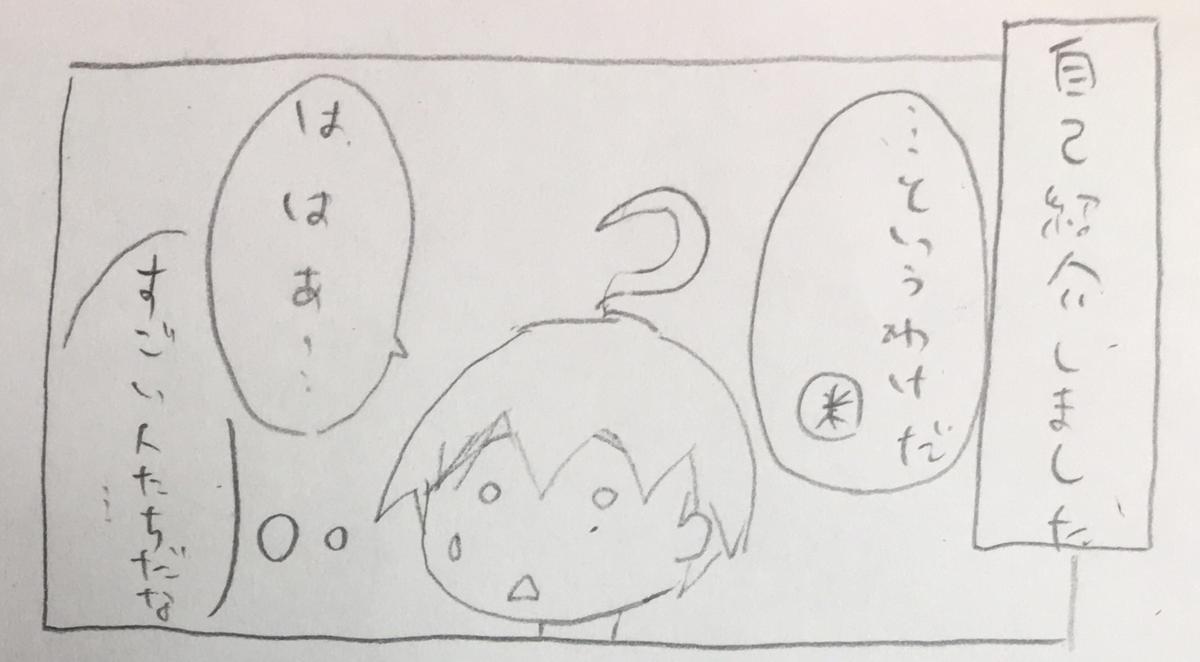 自己紹介しました
…というわけだ
米
は、はぁ……
すごい人たちだな
…